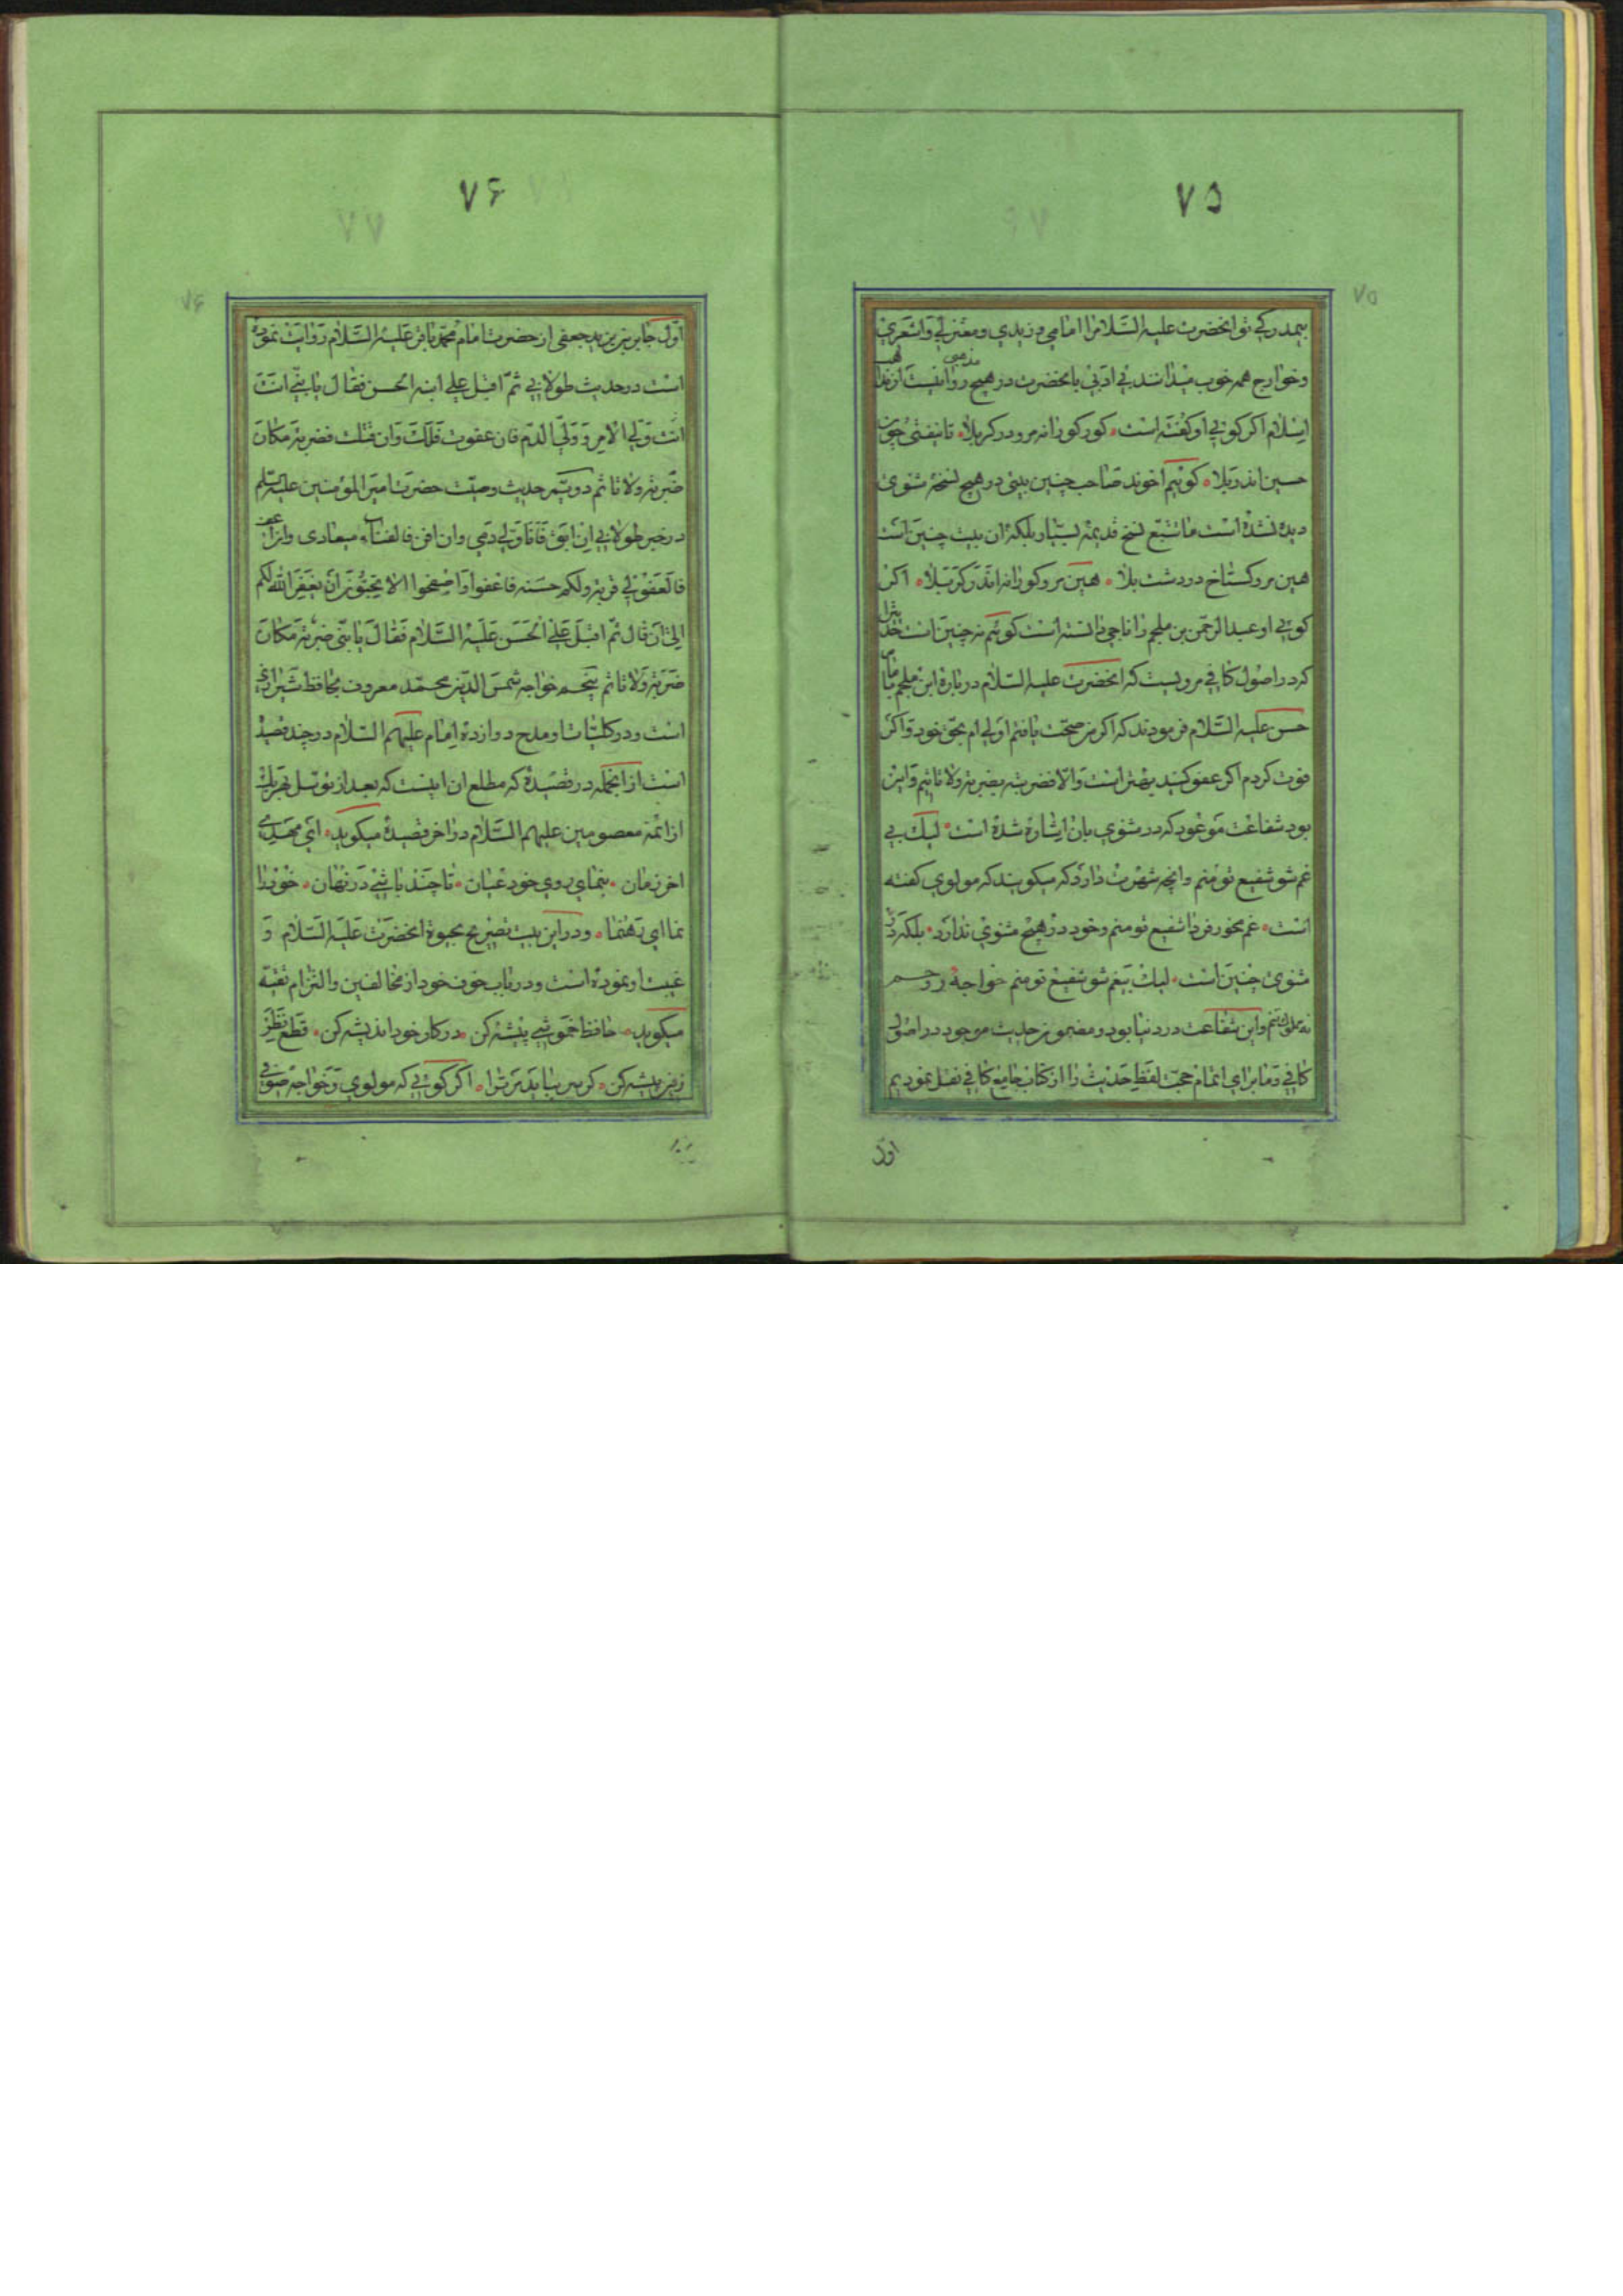 ۷۵
بیمدرکی تو انحضرت علیه السلام را امامی و زیدی و معتزلی و اشعری
و خوارج همه خوب میدانند بی ادبی بانحضرت در هیچ مذهبی روا نیست از مذاهب
اسلام اکر کویی او کفته است کور کورانه مرو در کربلا تا نیفتی چون
حسین اندر بلا کوییم اخوند صاحب چنین بیتی در هیچ نسخهٔ مثنوی
دیده نشده است ما تتبع نسخ قدیمه بسیار بلکه ان بیت چنین است
هین مرو کستاخ در دشت بلا هین مرو کورانه اندر کربلا اکر
کویی او عبدالرحمن بن ملجم را ناجی دانسته است کوییم نه چنین است
کرد در اصول کافی مرویست که انحضرت علیه السلام در بارهٔ ابن ملجم بامام
حسن علیه السلام فرمودند که اکر من صحت یافتم اولی ام بحق خود و اکر
فوت کردم اکر عفو کنید بهتر است و الا فضربته بضربته ولا تاثیم و این
بود شفاعت موعود که در مثنوی بان اشاره شده است لیک بی
غم شو شفیع تو منم و انچه شهرت دارد که میکویند که مولوی کفته
است غم مخور فردا شفیع تو منم وخود در هیچ مثنوی ندارد بلکه در
مثنوی چنین است لیک بیغم شو شفیع تو منم خواجهٔ روحم
نه مملوک تنم و این شفاعت در دنیا بود و مضمون حدیث موجود در اصول
کافی و ما برای اتمام حجت لفظ حدیث را از کتاب جامع کافی نقل نمودیم
اول
۷۶
اول جابر بن یزید جعفی از حضرت امام محمد باقر علیه السلام روایت نموده
است در حدیث طولانی ثم اقبل علی ابنه الحسن فقال یا بنی انت
انت ولی الامر و ولی الدم فان عفوت فلک وان قتلت فضربته مکان
ضربته ولا تاثم دویم حدیث وصیت حضرت امیر المؤمنین علیه السلم
در خبر طولانی ان ابق فانا ولی دمی وان افن فالفناء میعادی وان اعف
فالعفو لی قربة ولکم حسنه فاعفوا واصفحوا الا تحبون ان یغفر الله لکم
الی ان قال ثم اقبل علی الحسن علیه السلام فقال یا بنی ضربته مکان
ضربته ولا تاثم پنجم خواجه شمس الدین محمد معروف بحافظ شیرازی
است و در کلیات او مدح دوازده امام علیهم السلام در چند قصیده
است از انجمله در قصیدهٔ که مطلع ان اینست که بعد از توسل بهر یک
از ائمه معصومین علیهم السلام در اخر قصیده میکوید ای مهدی
اخر زمان بنمای روی خود عیان تا چند باشی در نهان خود را
نما ای رهنما و در این بیت تصریح بحیوة انحضرت علیه السلام و
غیبت او نموده است و در باب خوف خود از مخالفین والتزام تقیه
میکوید حافظ خموشی پیشه کن در کار خود اندیشه کن قطع نظر
زین پیشه کن کر سر بباید مر ترا اکر کویی که مولوی و خواجه صوفی